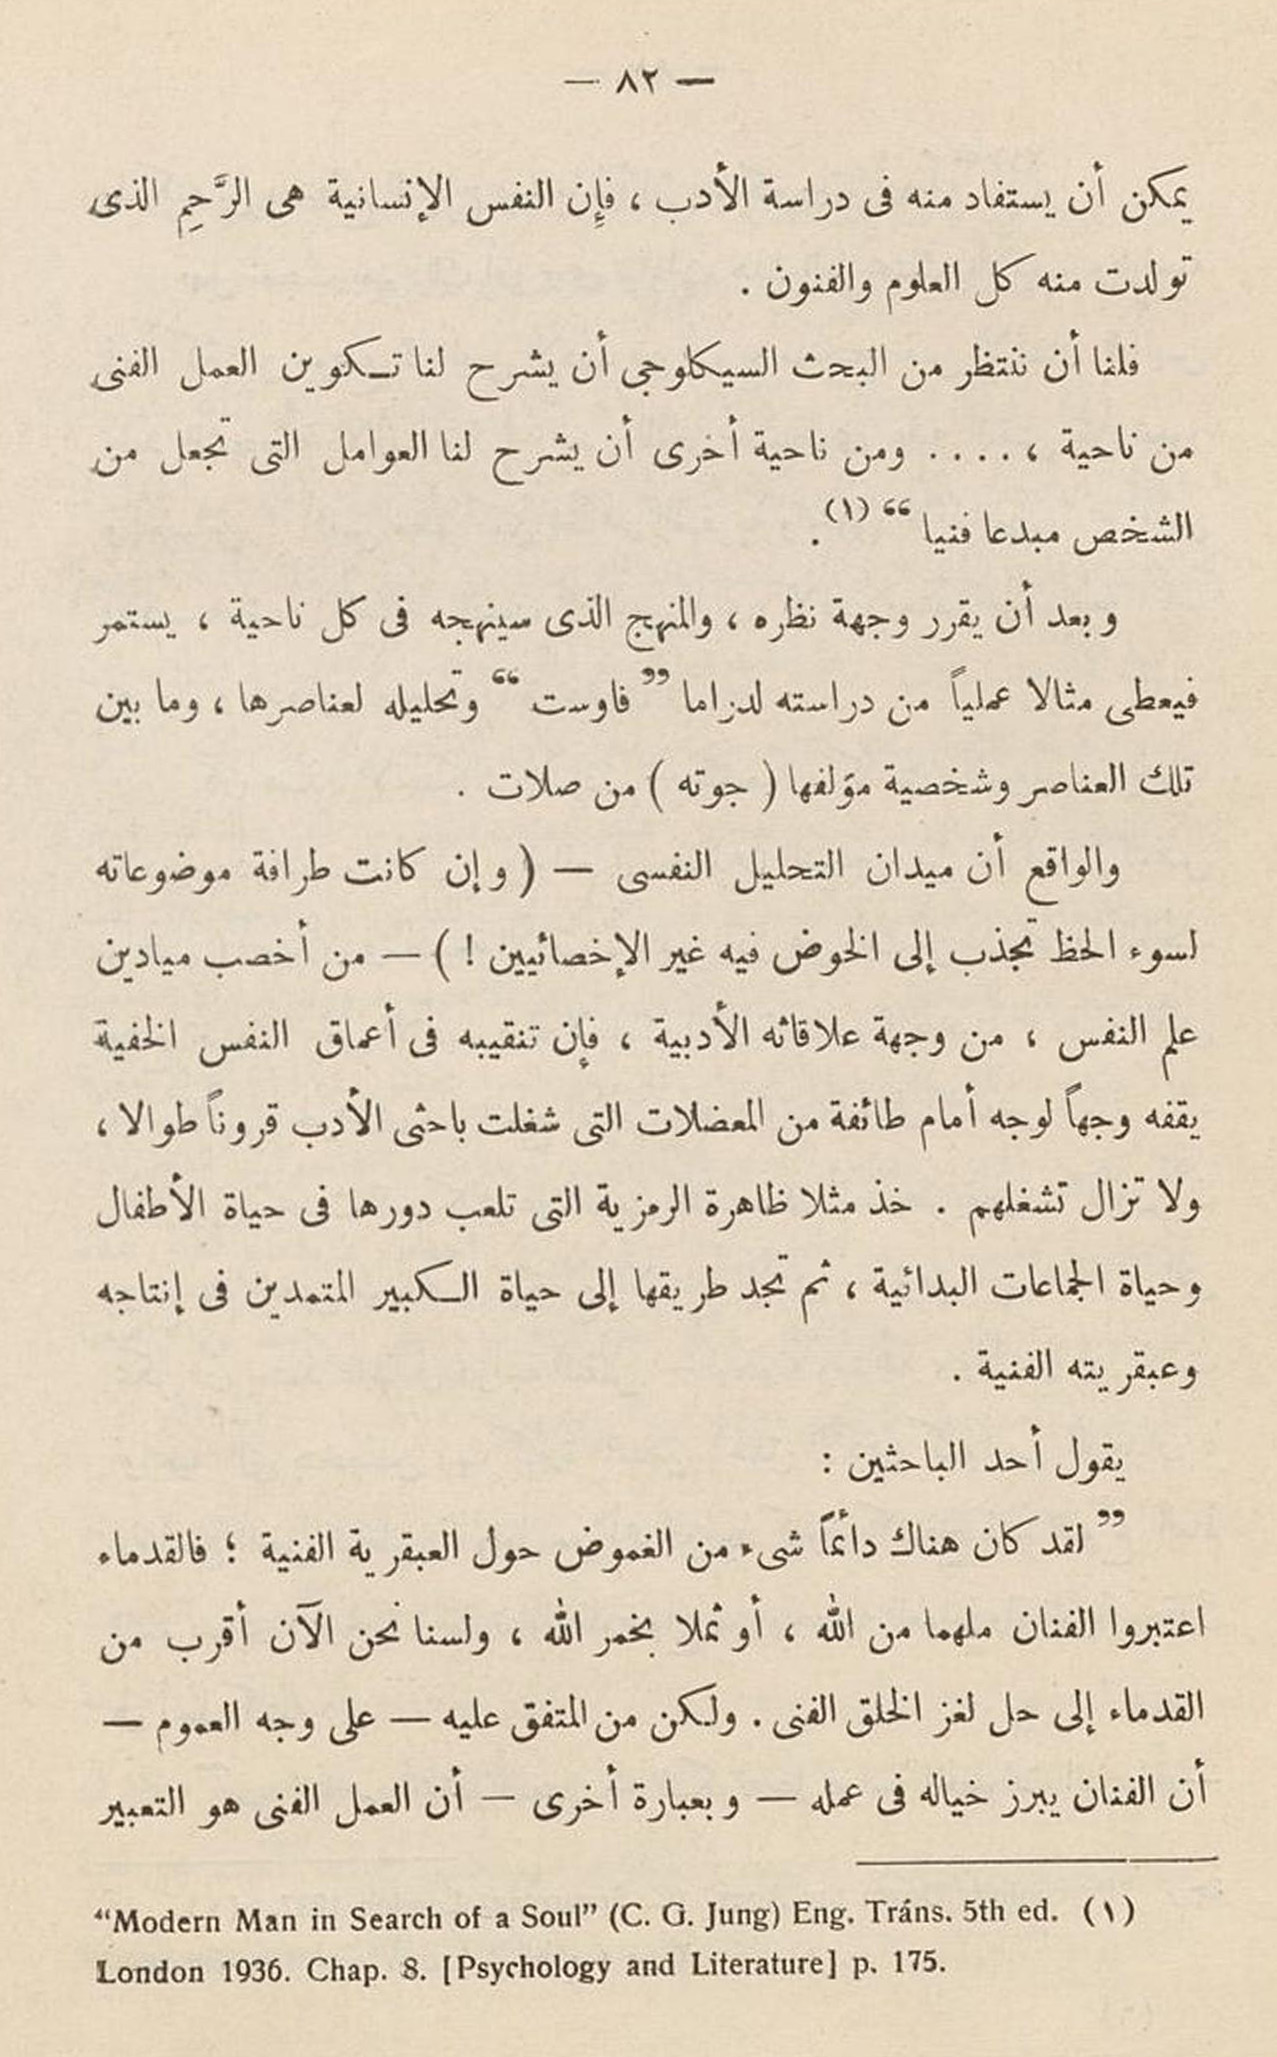 — ٨٢ —
يمكن أن يستفاد منه فى دراسة الأدب ، فإن النفس الإنسانية هى الرَّحِمِ الذى
تولدت منه كل العلوم والفنون .
فلنا أن ننتظر من البحث السيكلوجى أن يشرح لنا تكوين العمل الفنى
من ناحية ، .... ومن ناحية أخرى أن يشرح لنا العوامل التى تجعل من
الشخص مبدعا فنيا “ (١) .
وبعد أن يقرر وجهة نظره ، والمنهج الذى سينهجه فى كل ناحية ، يستمر
فيعطى مثالا عملياً من دراسته لدراما ” فاوست “ وتحليله لعناصرها ، وما بين
تلك العناصر وشخصية مؤلفها ( جوته ) من صلات .
والواقع أن ميدان التحليل النفسى — ( وإن كانت طرافة موضوعاته
لسوء الحظ تجذب إلى الخوض فيه غير الإخصائيين ! ) — من أخصب ميادين
علم النفس ، من وجهة علاقاته الأدبية ، فإن تنقيبه فى أعماق النفس الخفية
يقفه وجهاً لوجه أمام طائفة من المعضلات التى شغلت باحثى الأدب قروناً طوالا ،
ولا تزال تشغلهم . خذ مثلا ظاهرة الرمزية التى تلعب دورها فى حياة الأطفال
وحياة الجماعات البدائية ، ثم تجد طريقها إلى حياة الكبير المتمدين فى إنتاجه
وعبقريته الفنية .
يقول أحد الباحثين :
” لقد كان هناك دائماً شىء من الغموض حول العبقرية الفنية ؛ فالقدماء
اعتبروا الفنان ملهما من الله ، أو ثملا بخمر الله ، ولسنا نحن الآن أقرب من
القدماء إلى حل لغز الخلق الفنى . ولكن من المتفق عليه — على وجه العموم —
أن الفنان يبرز خياله فى عمله — وبعبارة أخرى — أن العمل الفنى هو التعبير
“Modern Man in Search of a Soul” (C. G. Jung) Eng. Tráns. 5th ed. (١)
London 1936. Chap. 8. [Psychology and Literature] p. 175.